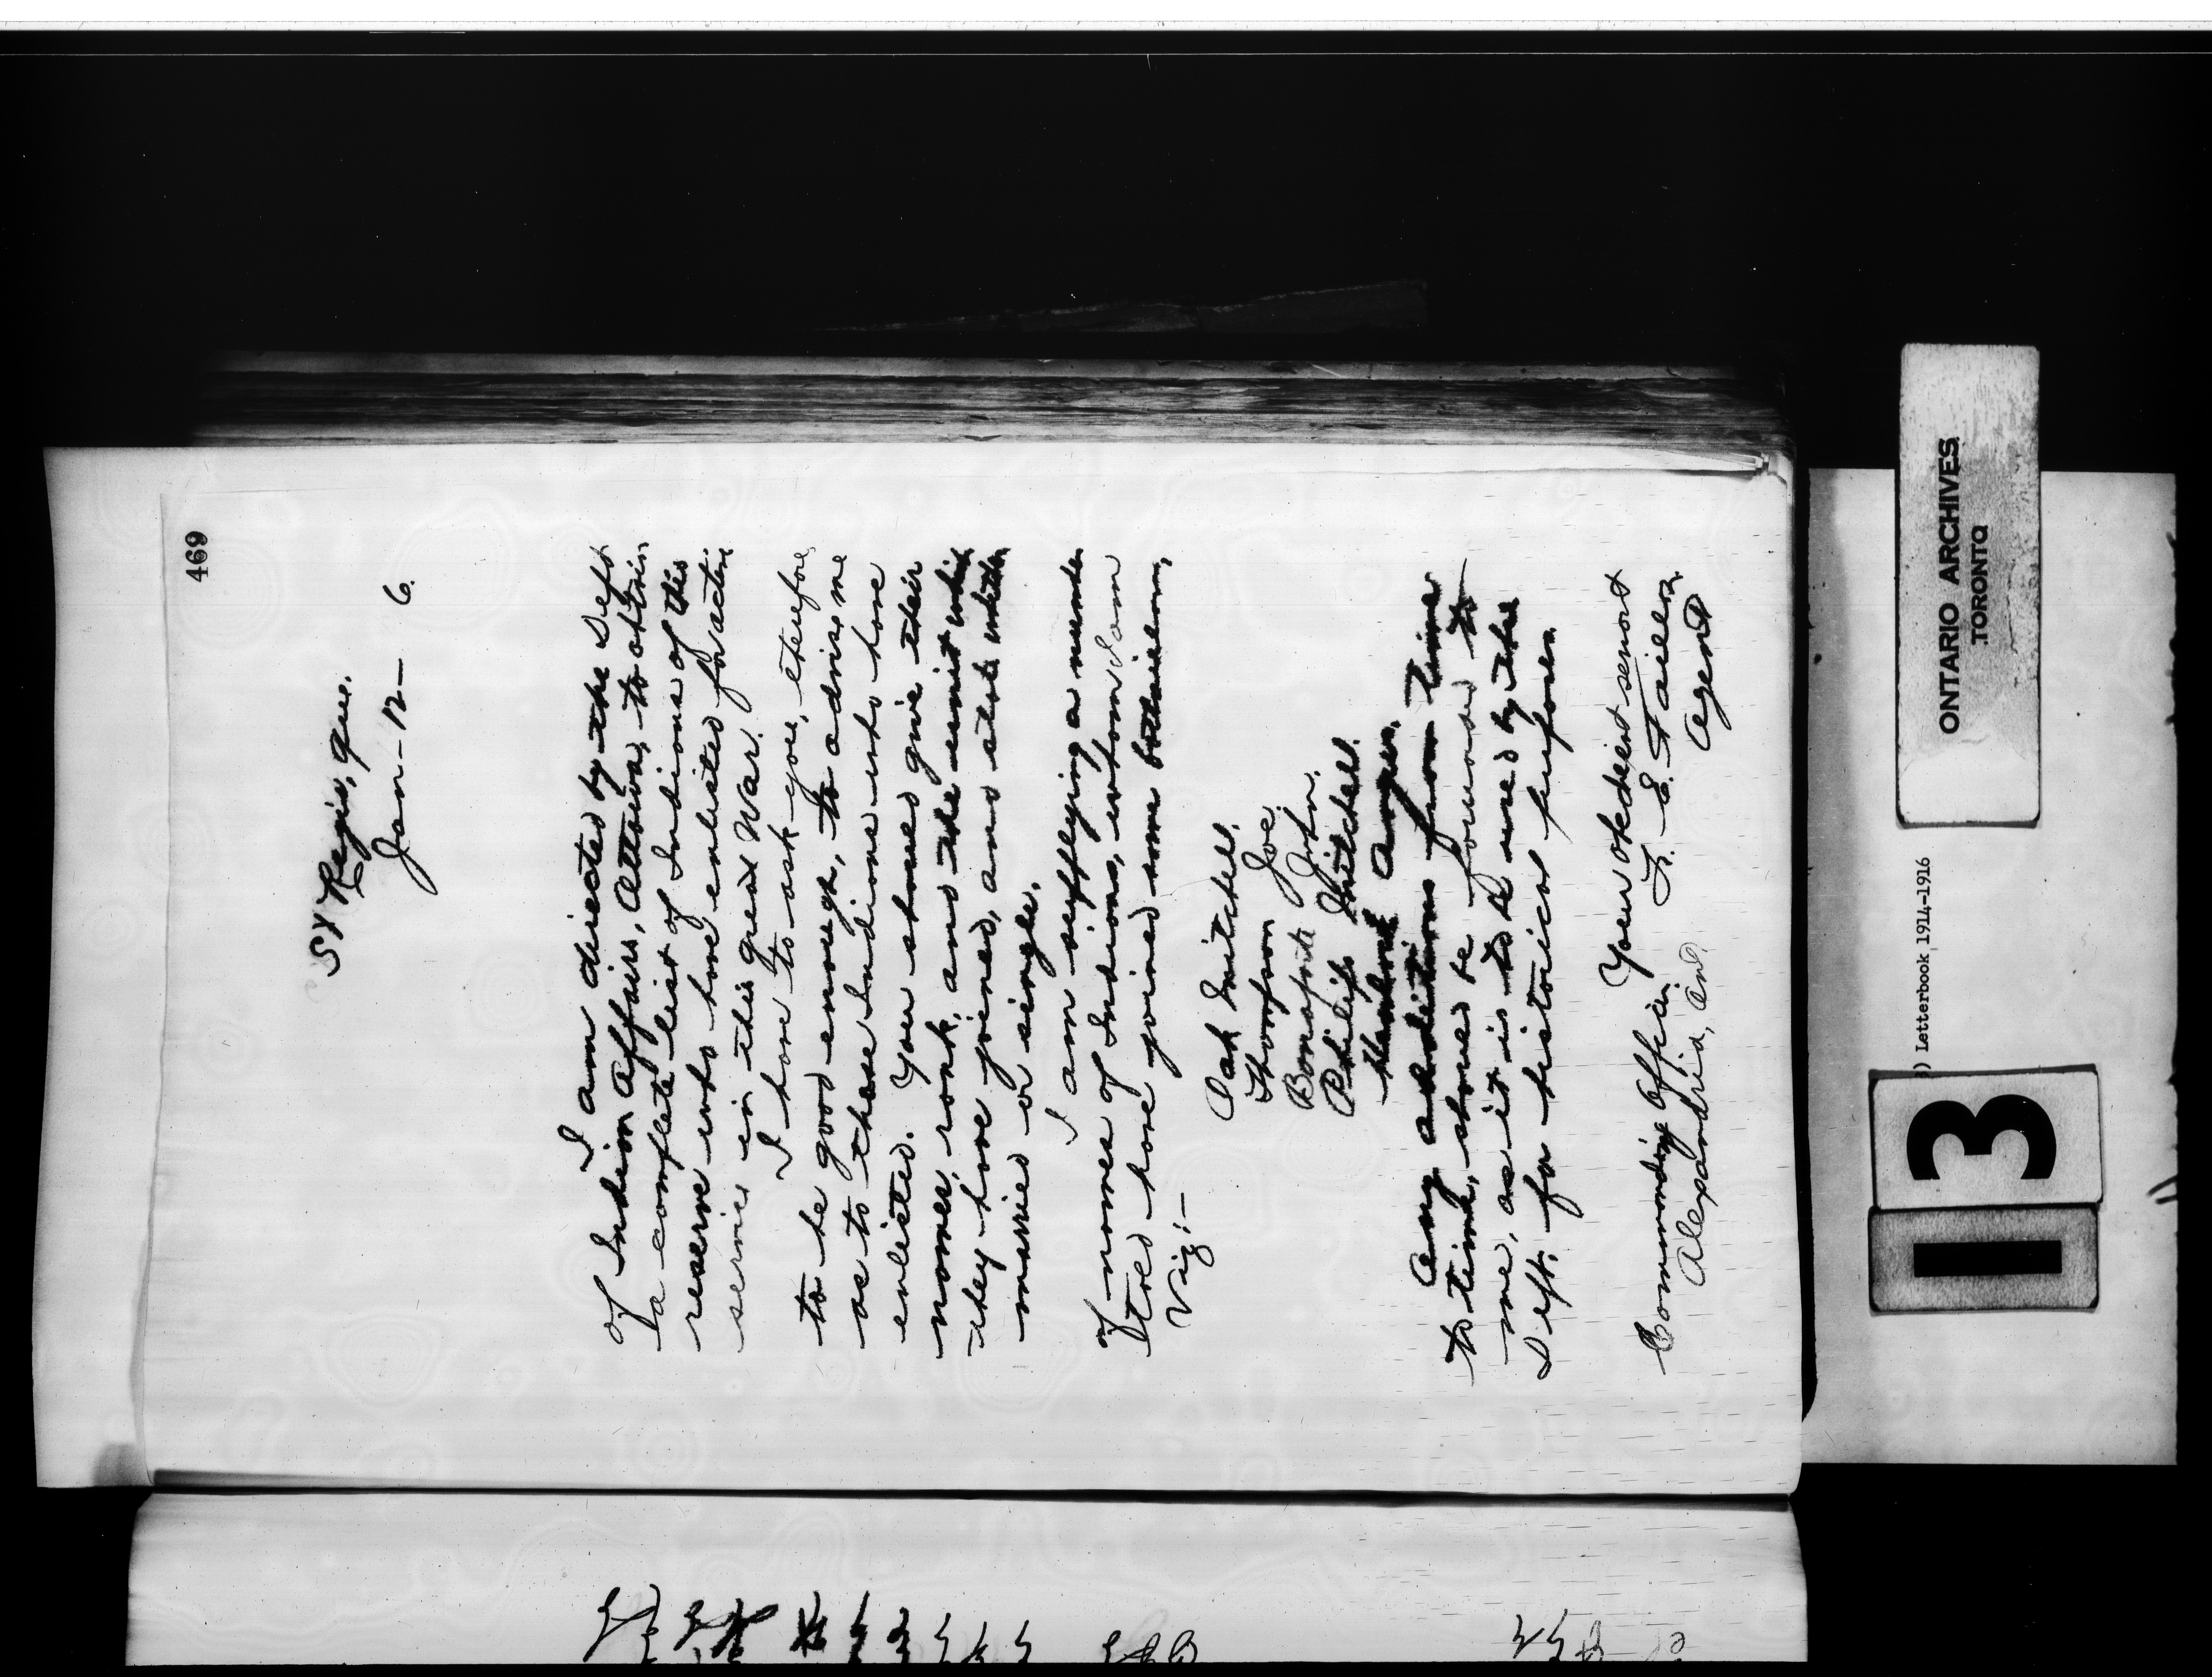 469
St Regis, Que.
Jan - 12 - 6.
I am directed by the Dept
of Indian Affairs, Ottawa, to obtain
a complete list of Indians of this
reserve who have enlisted for active
service in this great War.
I have to ask you, therefore,
to be good enough, to advise me
as to these Indians who have
enlisted. You should give their
names, rank, and the unit which
they have joined, and state whether
married or single.
I am supplying a number
of names of Indians, whom I am
told have joined some battalion,
Viz:-
Mitchell.
Thompson Joe.
Bonaparte John.
Philip Mitchell.
Angus.
Any additions from time
to time, should be forwarded to
me, as it is to be used by the
Dept. for historical purposes.
Your obedient servant
F. E. Taillon
Agent
Commanding Officer
Alexandria, Ont.
ONTARIO ARCHIVES
TORONTO
) Letterbook 1914-1916
13